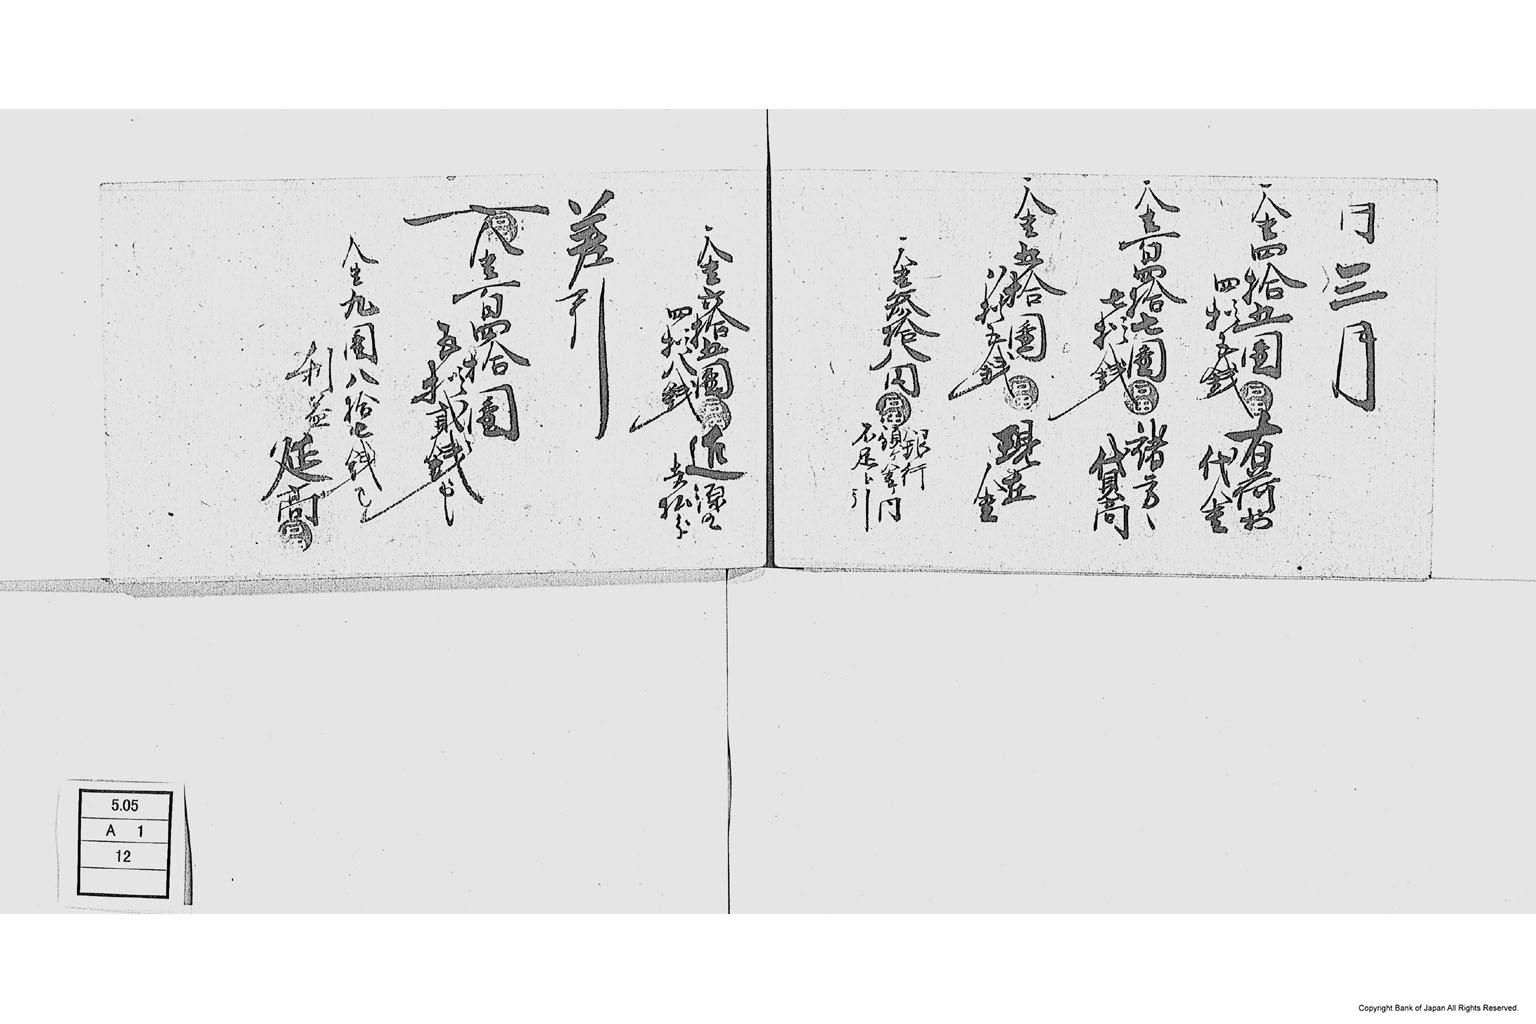 同三月
一金四拾五圓
四拾五銭
有荷物
代金
一金百四拾七圓
七拾銭
諸方へ
貸高
一金五拾圓
八拾五銭
現在
金
一金参拾八円
銀行
鎮台年円
不足ニ引
一金六拾五圓
四拾八銭
近源へ
未払分
差引
一金百四拾圓
五拾貳銭也
金九圓八拾七銭也
利益
延高
5.05
A 1
12
Copyright Bank of Japan All Rights Reserved.